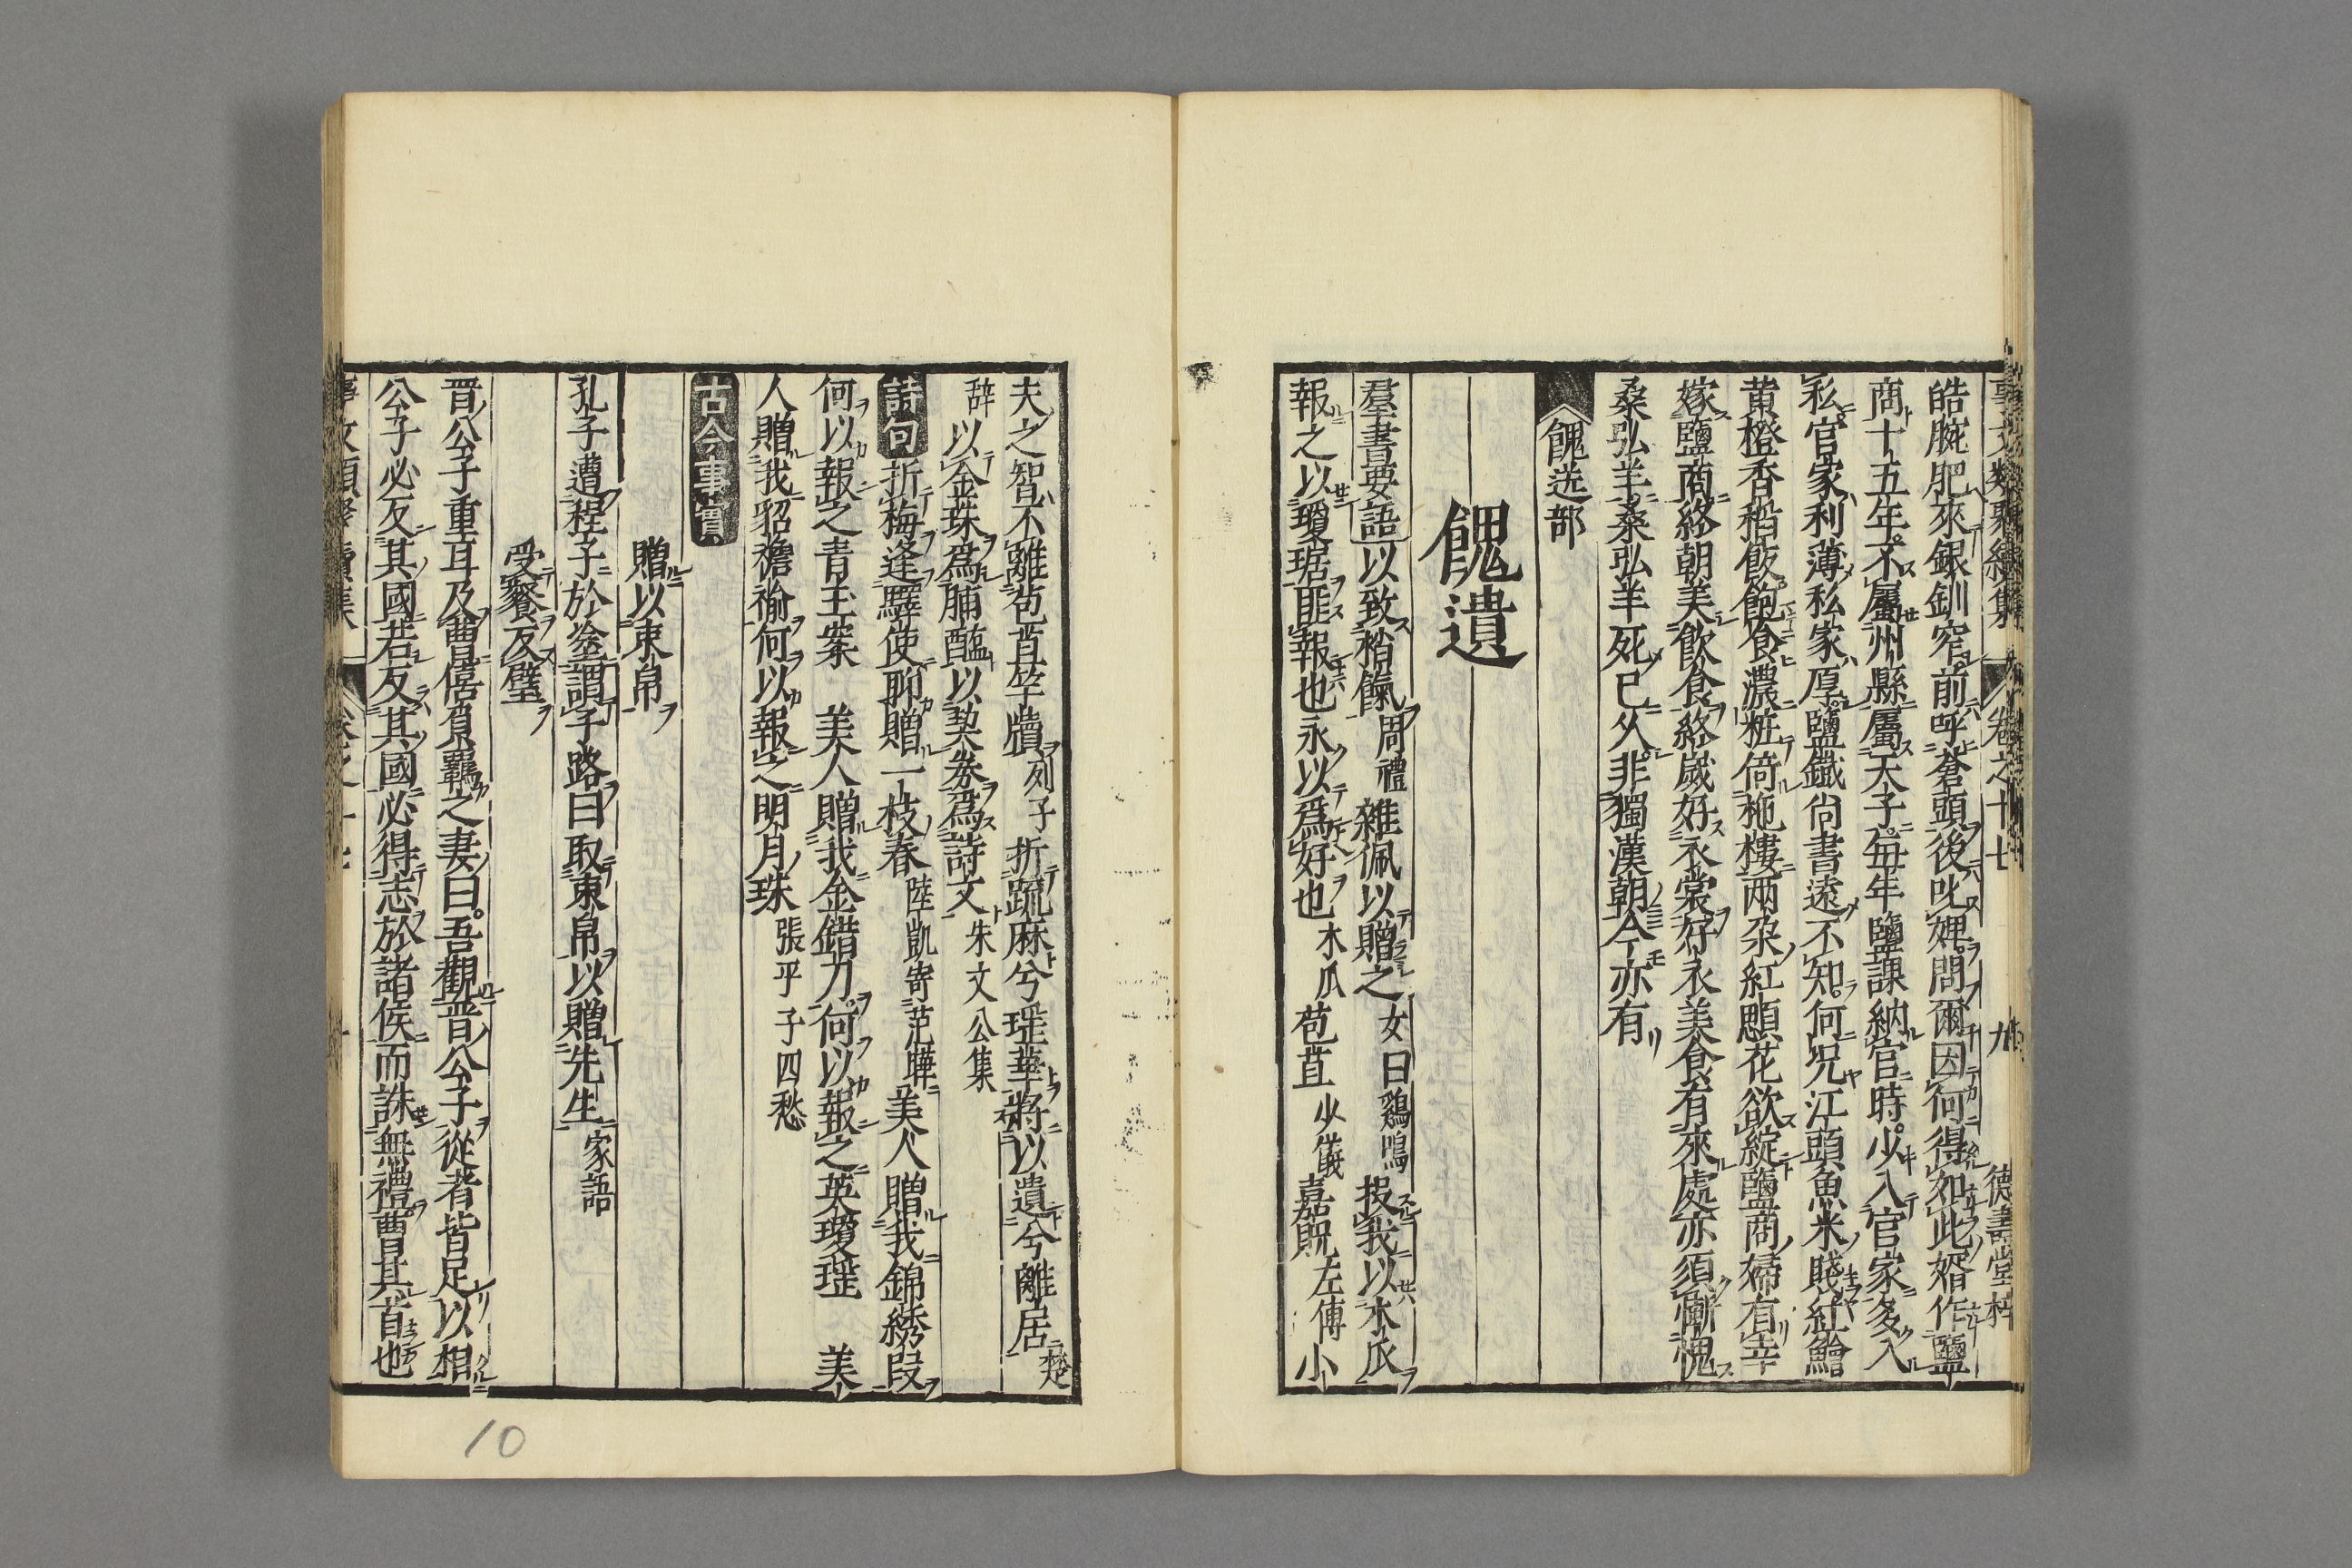 事文類聚續集 卷之十七 九 德壽堂梓
皓腕肥來銀釧窄前呼蒼頭後叱婢問爾因何得如此婿作鹽
商十五年不屬州縣屬天子每年鹽課納官時少入官家多入
私官家利薄私家厚鹽鐵尙書遠不知何况江頭魚米賤紅鱠
黃橙香稻飯飽食濃粧倚柂樓兩朶紅顋花欲綻鹽商婦有幸
嫁鹽商終朝美飮食終歲好衣裳好衣美食有來處亦須慚愧
桑弘羊桑弘羊死已久非獨漢朝今亦有
餽送部
餽遺
羣書要語以致稍餼周禮雜佩以贈之女曰鷄鳴投我以木瓜
報之以瓊琚匪報也永以爲好也木瓜苞苴少儀嘉貺左傳小
夫之智不離苞苴竿牘列子折疏麻兮瑶華將以遺兮離居楚
辞以金珠爲脯醢以契劵爲詩文朱文公集
詩句折梅逢驛使聊贈一枝春陸凱寄范曄美人贈我錦綉段
何以報之青玉案 美人贈我金錯刀何以報之英瓊瑶 美
人贈我貂襜褕何以報之明月珠張平子四愁
古今事實
贈以束帛
孔子遭程子於塗謂子路曰取束帛以贈先生家語
受餐反璧
晋公子重耳及曹僖負羈之妻曰吾觀晋公子從者皆足以相
公子必反其國若反其國必得志於諸侯而誅無禮曹其首也